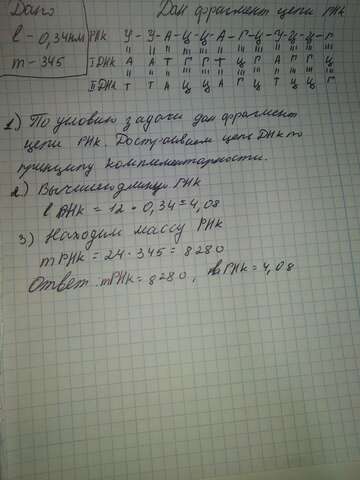 Дано
Дан фрагмент цепи РНК
l - 0,34нм
m - 345
РНК У - У - А - Ц - Ц - А - Г - Ц - У - Ц - Ц - Г
I ДНК А А Т Г Г Т Ц Г А Г Г Ц
II ДНК Т Т А Ц Ц А Г Ц Т Ц Ц Г
1) По условию задачи дан фрагмент
цепи РНК. Достраиваем цепь ДНК по
принципу комплементарности.
2) Вычислен длину РНК
l ДНК = 12 • 0,34 = 4,08
3) Находим массу РНК
m РНК = 24 • 345 = 8280
Ответ: mРНК = 8280, РНК = 4,08